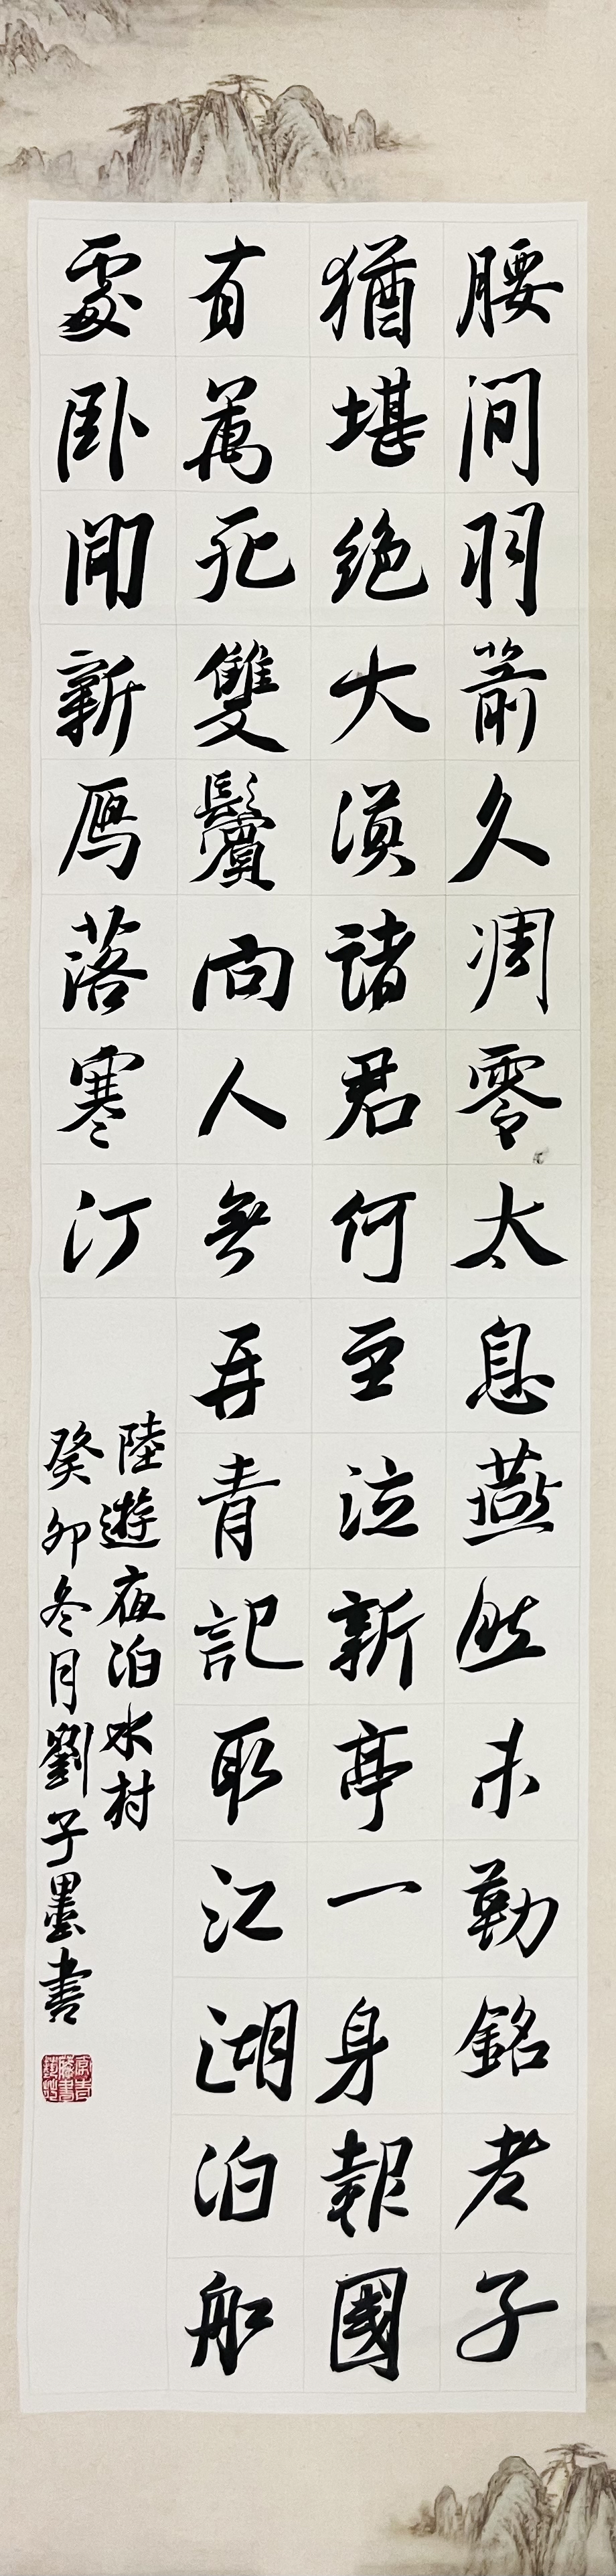 腰間羽箭久凋零太息燕然未勒銘老子
猶堪絶大漠諸君何至泣新亭一身報國
有萬死雙鬢向人無再青記取江湖泊船
處臥聞新雁落寒汀
陸遊夜泊水村
癸卯冬月劉子墨書